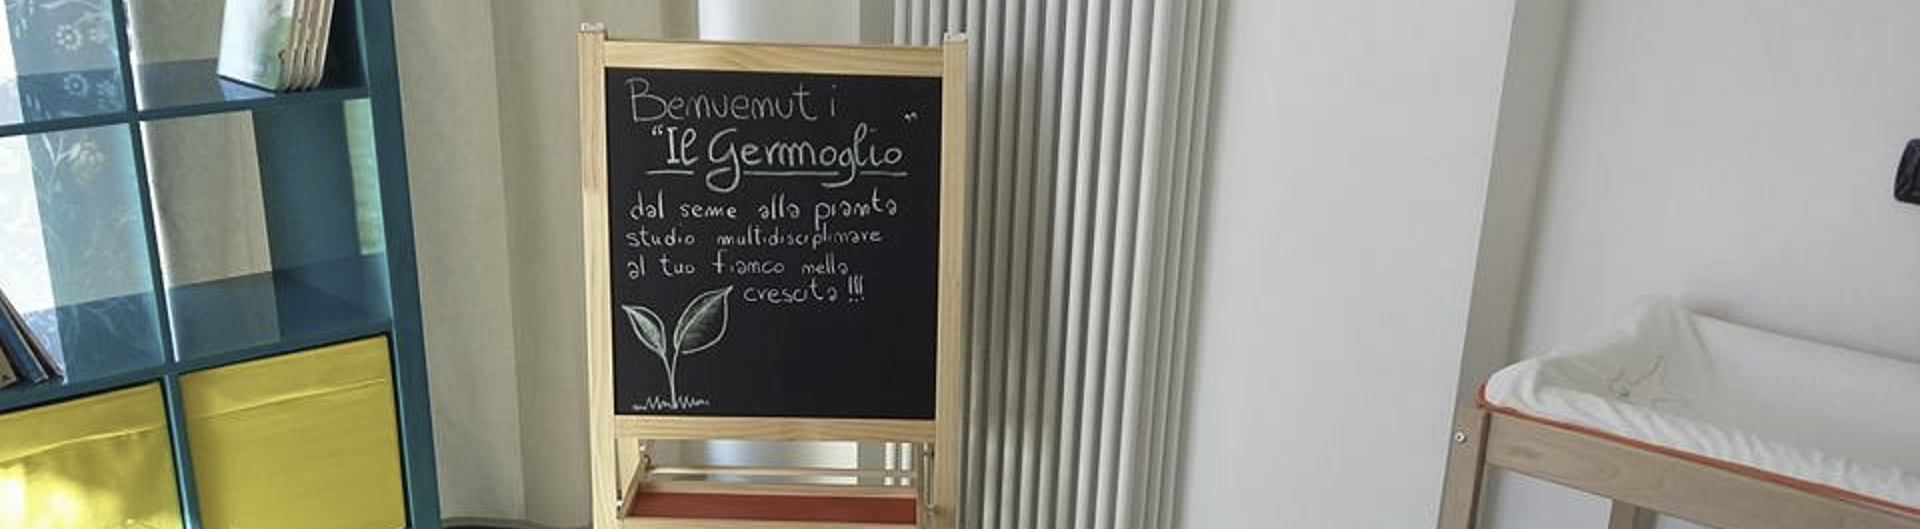 Benvenuti
"Il Germoglio"
dal seme alla pianta
studio multidisciplinare
al tuo fianco nella
crescita !!!